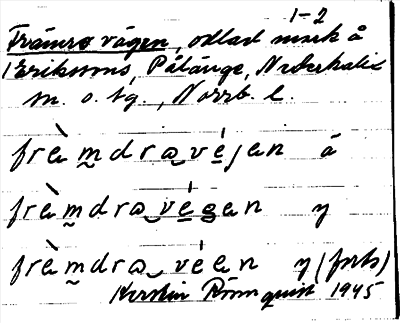 1-2
Främre vägen, odlad mark å
Erikssons, Pålänge, Nederkalix
sn. o. tg., Norrb. l.
frè̀m̰dra‿vé̱jen ä
frè̀m̰dra‿vé̱gen y
frè̀m̰dra‿véen y (forts)
Kerstin Rönnquist 1945